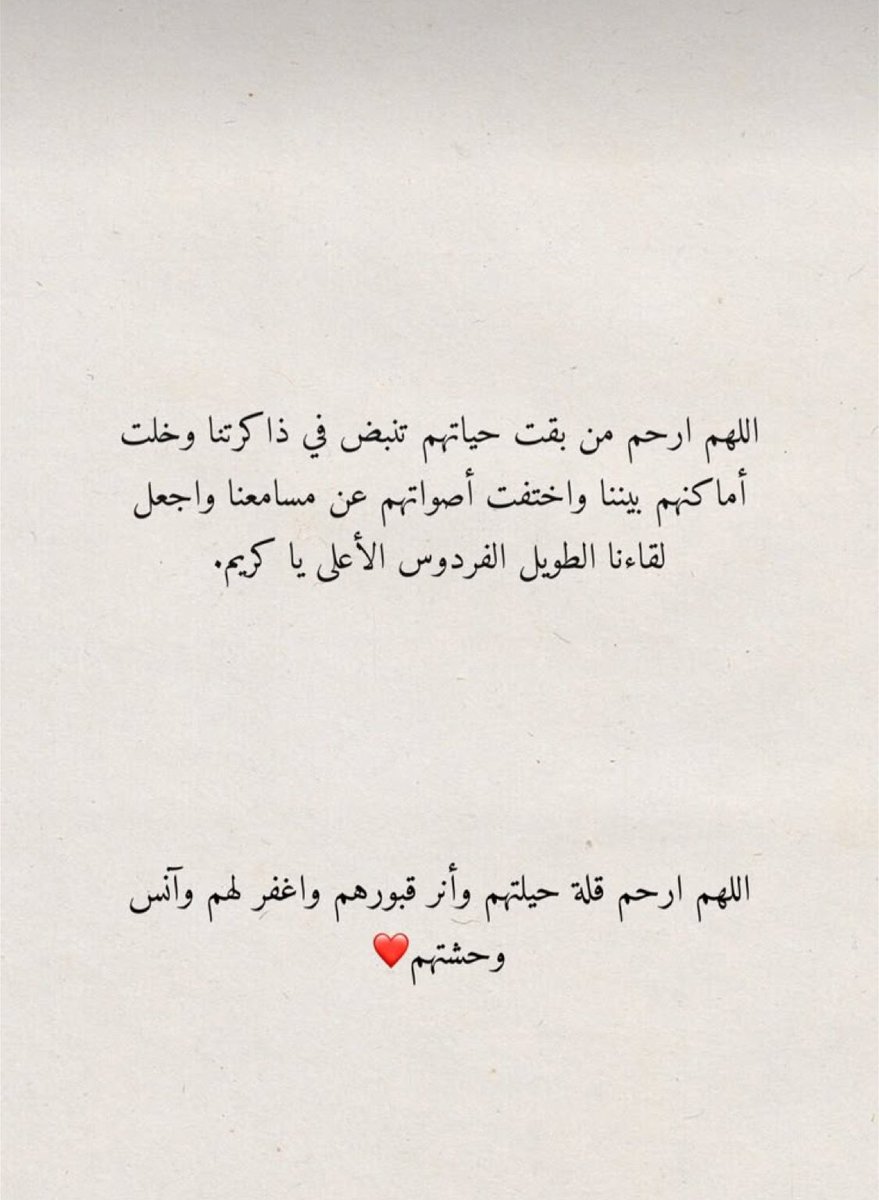 اللهم ارحم من بقت حياتهم تنبض في ذاكرتنا وخلت
أماكنهم بيننا واختفت أصواتهم عن مسامعنا واجعل
لقاءنا الطويل الفردوس الأعلى يا كريم.
اللهم ارحم قلة حيلتهم وأنر قبورهم واغفر لهم وآنس
وحشتهم❤️